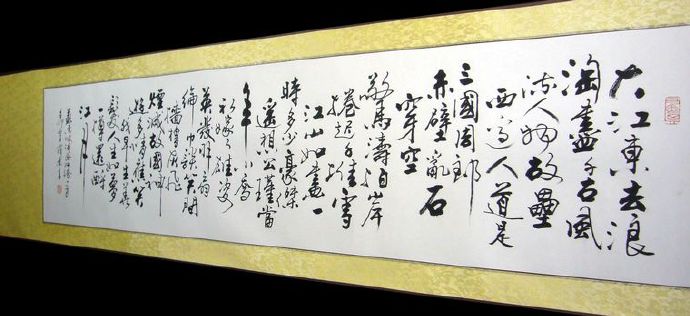 大江東去浪
淘盡千古風
流人物故壘
西邊人道是
三國周郎
赤壁亂石
穿空
驚濤拍岸
捲起千堆雪
江山如畫一
時多少豪傑
遙想公瑾當
年小喬
初嫁了雄姿
英發羽扇
綸巾談笑間
檣櫓灰飛
煙滅故國神
遊多情應笑
我早生華
髮人生如夢
一樽還酹
江月